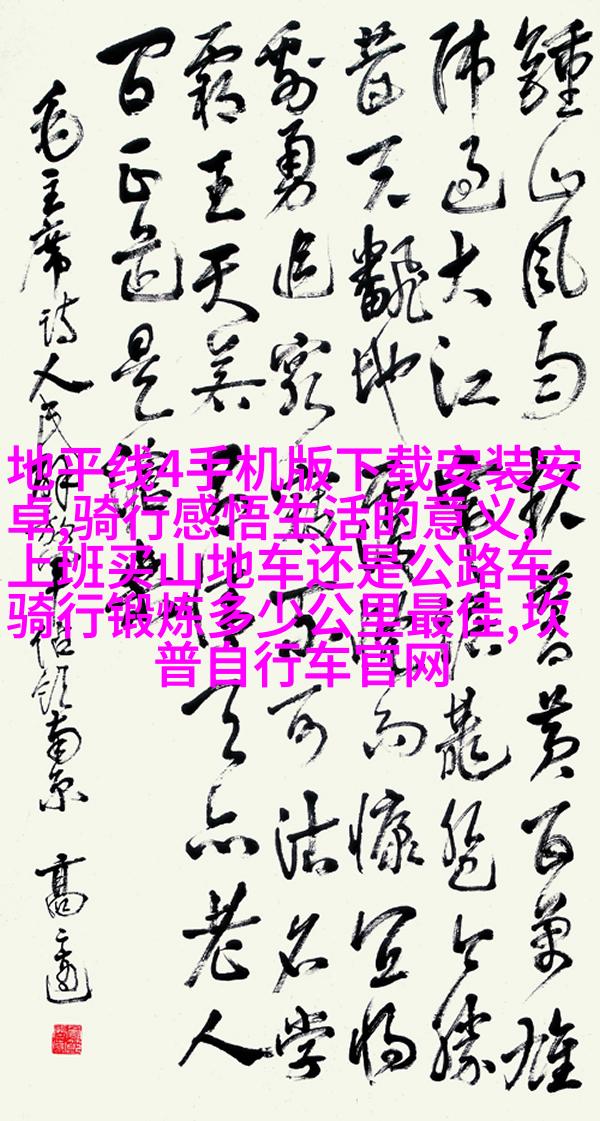 鍾山风雨起蒼黄百万雄
师过大江虎踞龍盘今胜
昔天翻地覆慨而慷宜将
剩勇追窮寇不可沽名学
霸王天若有情天亦老人
间正道是滄桑
毛主席诗人民解放军佔领南京 高
地平线4手机版下载安装安
卓,骑行感悟生活的意义,
上班买山地车还是公路车,
骑行锻炼多少公里最佳,坎
普自行车官网